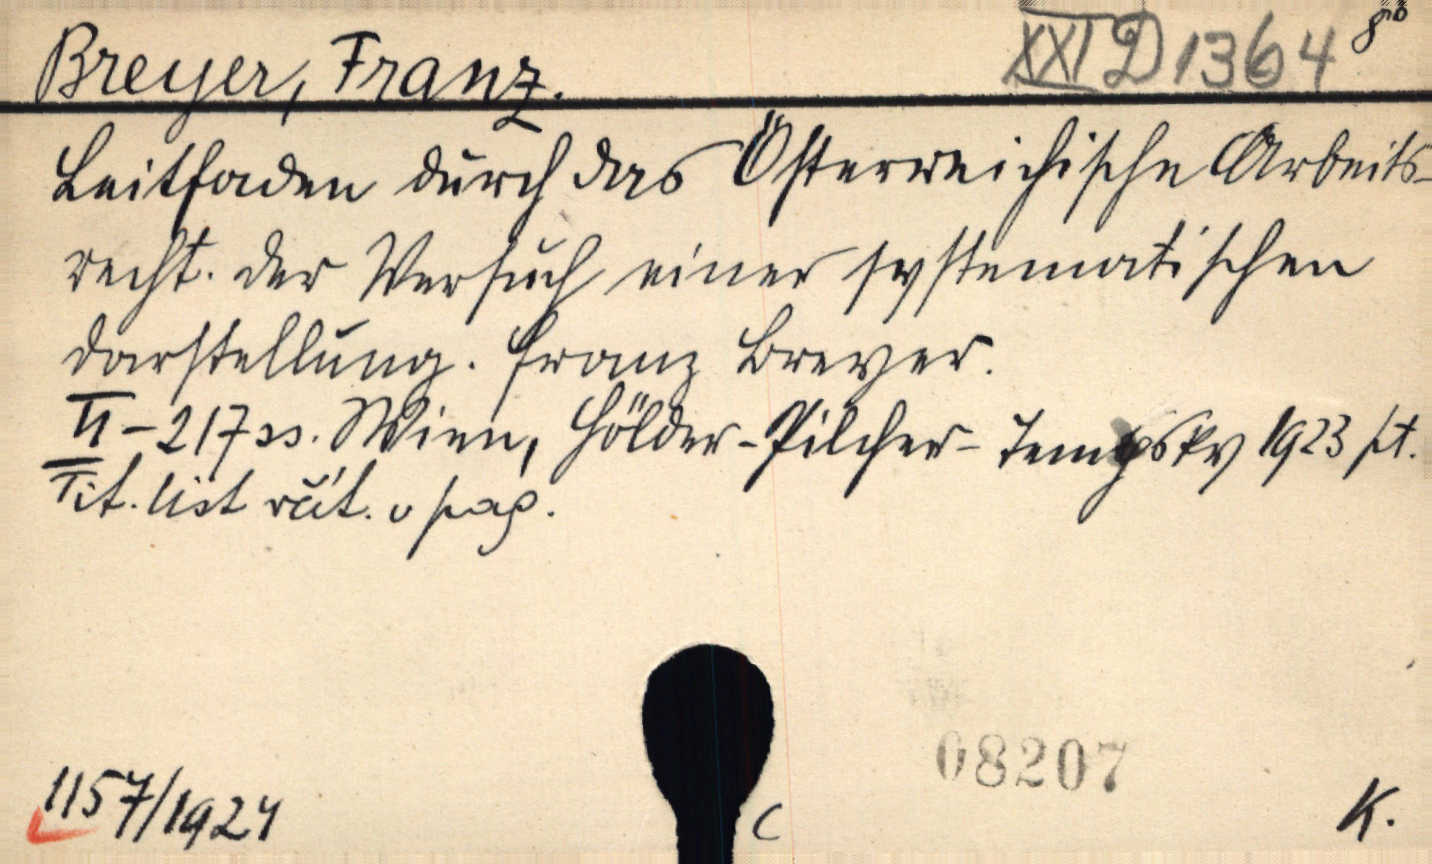 Breyer, Franz.
XXI D 1364
8ro
Leitfaden durch das Österreichische Arbeits-
recht. der Versuch einer systematischen
darstellung. Franz Breyer.
VI-217 ss. Wien, Hölder-Pilcher-Tempsky 1923 st.
Tit. list v pag.
08207
1157/1924
C
K.